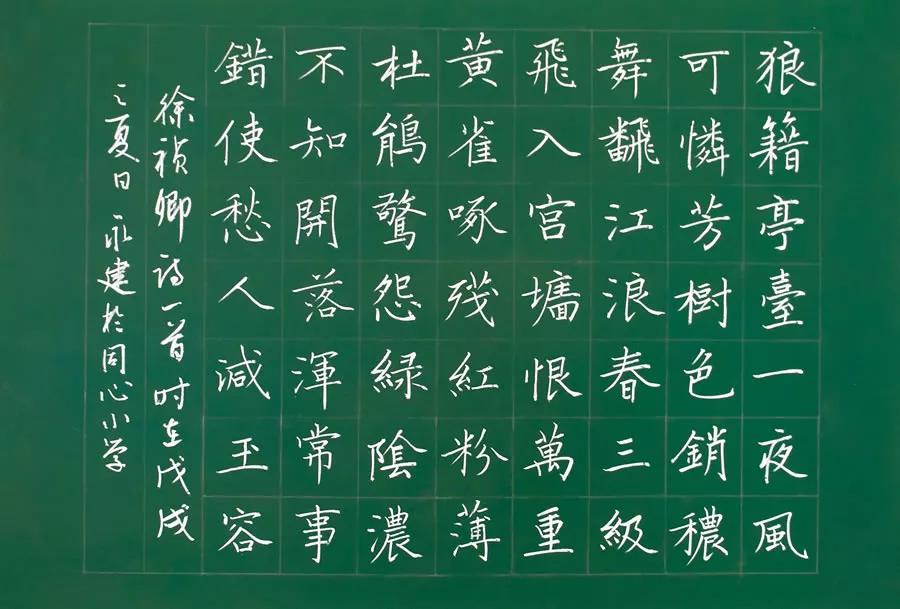 狼籍亭臺一夜風
可憐芳樹色銷穠
舞飜江浪春三級
飛入宮墻恨萬重
黃雀啄殘紅粉薄
杜鵑驚怨緑陰濃
不知開落渾常事
錯使愁人減玉容
徐禎卿詩一首时在戊戌
之夏日永建於同心小学